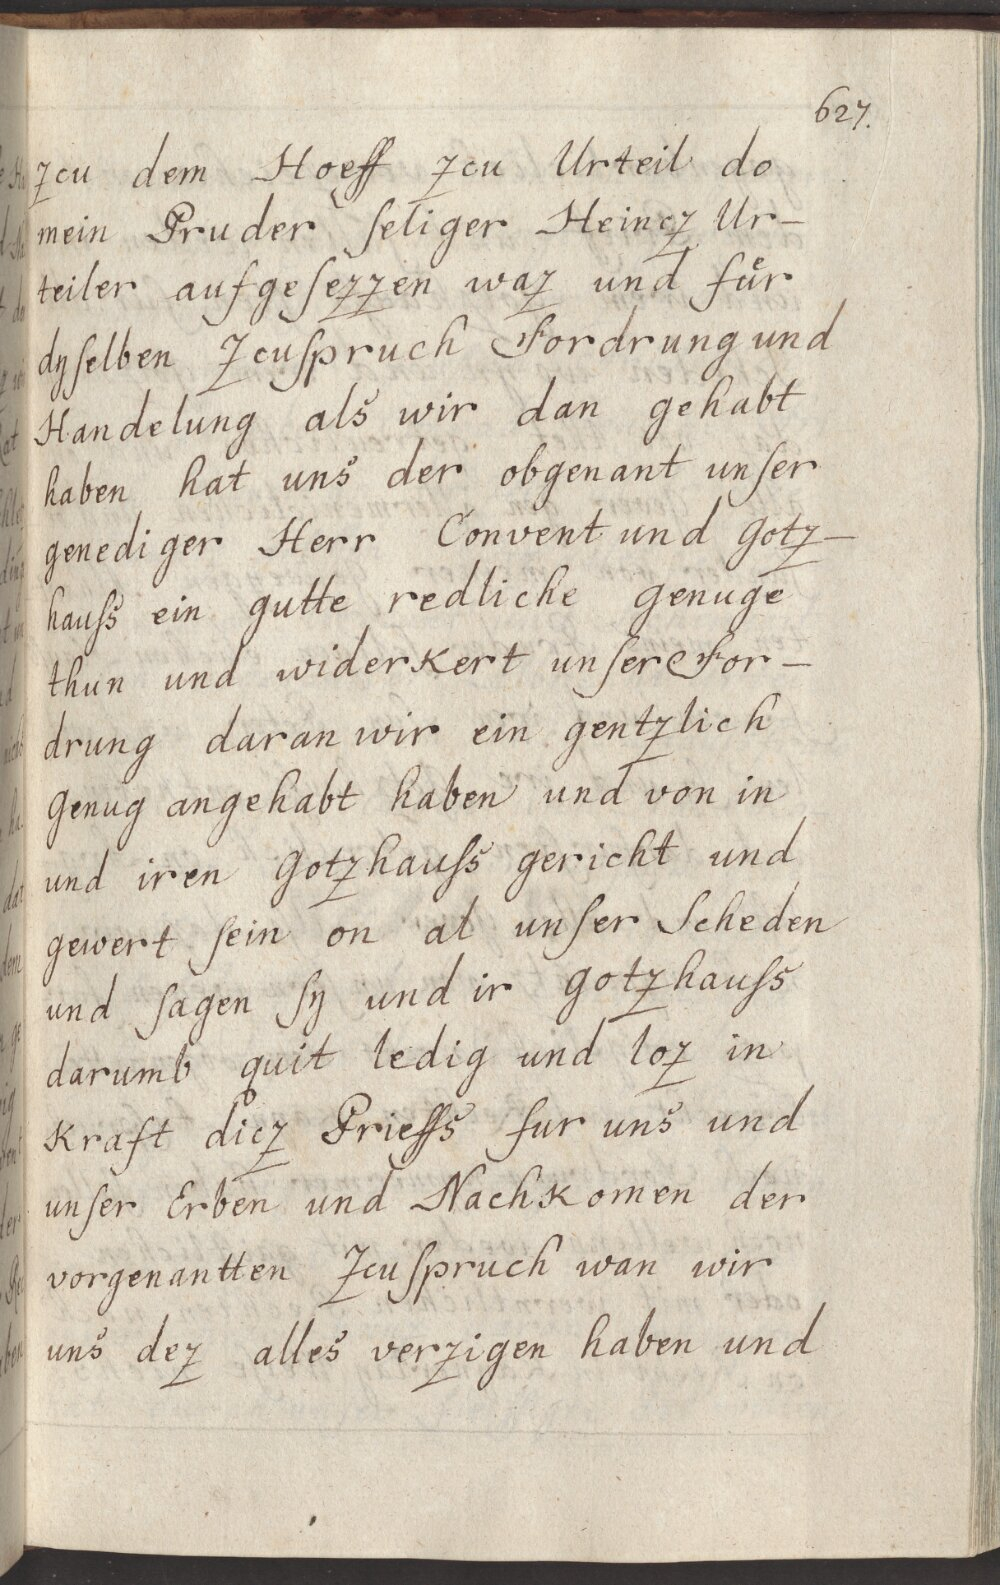 627.
zcu dem Hoeff zcu Urteil do
mein Pruder seliger Heincz Ur-
teiler aufgesezzen waz und fuͤr
dyselben Zcuspruch Fordrung und
Handelung als wir dan gehabt
haben hat uns der obgenant unser
genediger Herr Convent und gotz-
hauss ein gutte redliche genuge
thun und widerkert unser For-
drung daran wir ein gentzlich
genug angehabt haben und von in
und iren gotzhauss gericht und
gewert sein on al unser Scheden
und sagen sy und ir gotzhauss
darumb quit ledig und loz in
kraft dicz Prieffs fur uns und
unser Erben und Nachkomen der
vorgenantten Zcuspruch wan wir
uns dez alles verzigen haben und